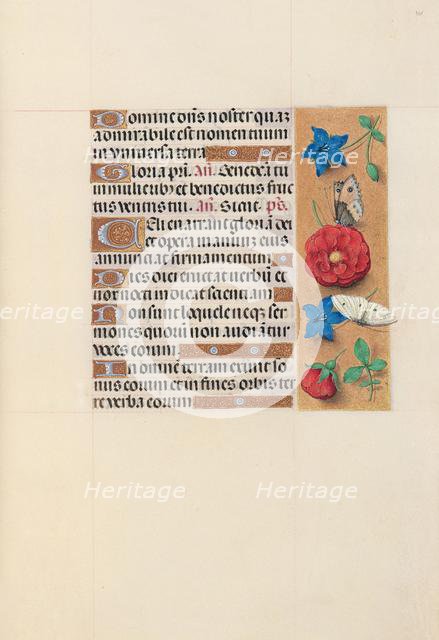 Domine dn̄s noster quaꝫ
admirabile est nomen tuum
in vniuersa terra
Gloria p̄ri. An̄. Benedicta tu
in mulieribꝫ et benedictus fruc
tus ventris tui. An̄. Sicut. ps̄.
Celi enarrant gloriā dei
et opera manuū eius
annunciat firmamentum
Dies diei eructat verbū et
nox nocti indicat scientiam
Non sunt loquele neqꝫ ser
mones quorū non audiātur
voces eorum
In omnem terram exiuit so
nus eorum et in fines orbis ter
re verba eorum
Heritage
Heritage
Heritage
Heritage
Heritage
Heritage